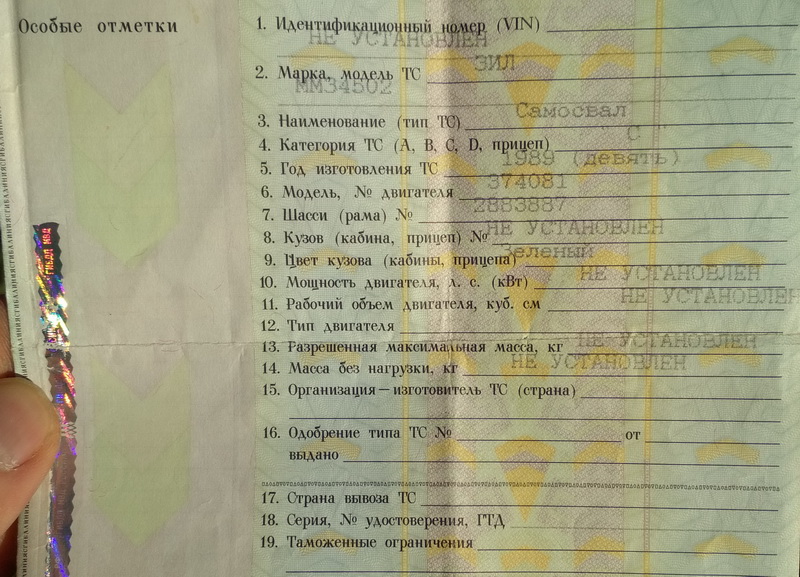 Особые отметки
1. Идентификационный номер (VIN)
НЕ УСТАНОВЛЕН
2. Марка, модель ТС ЗИЛ
ММЗ4502
3. Наименование (тип ТС) Самосвал
4. Категория ТС (А, В, С, D, прицеп) С
5. Год изготовления ТС 1989 (девять)
6. Модель, № двигателя 374081
7. Шасси (рама) № 2883887
8. Кузов (кабина, прицеп) № НЕ УСТАНОВЛЕН
9. Цвет кузова (кабины, прицепа) Зеленый
10. Мощность двигателя, л. с. (кВт) НЕ УСТАНОВЛЕН
11. Рабочий объем двигателя, куб. см НЕ УСТАНОВЛЕН
12. Тип двигателя
13. Разрешенная максимальная масса, кг НЕ УСТАНОВЛЕН
14. Масса без нагрузки, кг НЕ УСТАНОВЛЕН
15. Организация — изготовитель ТС (страна)
16. Одобрение типа ТС № от
выдано
17. Страна вывоза ТС
18. Серия, № удостоверения, ГТД
19. Таможенные ограничения